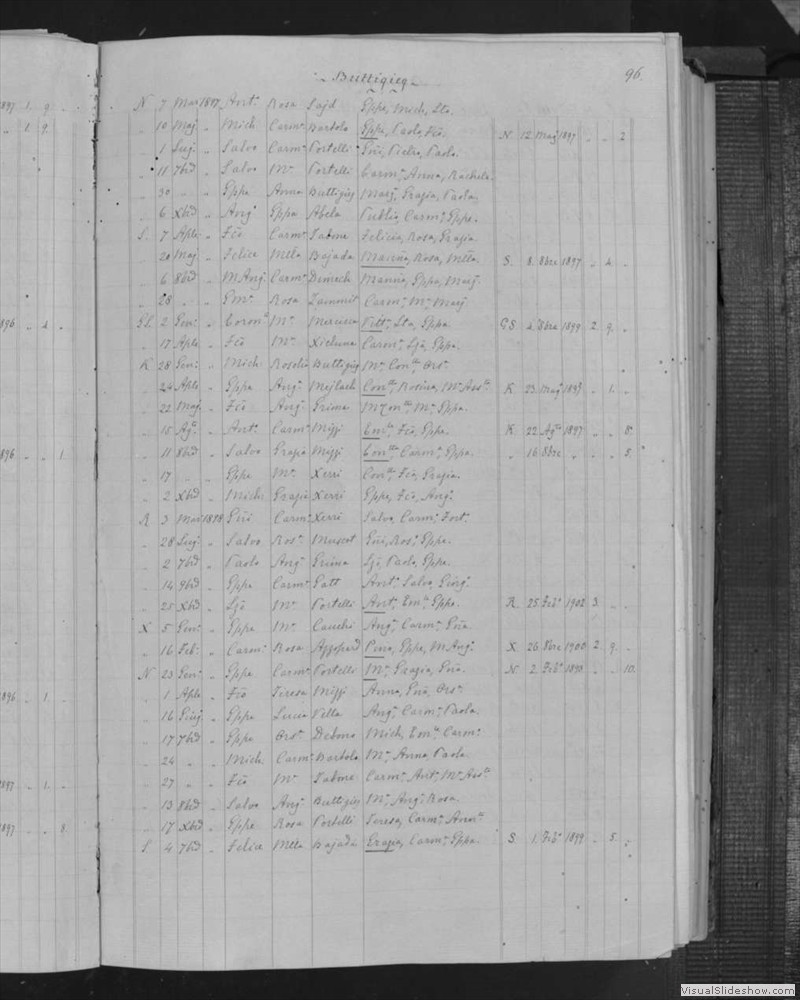 Buttigieg
96.
1897 1. 9. N 7 Mar 1897 Ant. Rosa Sajd Eppa, Mich, Sta.
" 1 9. " 10 Maj " Mich Carm. Bartolo Eppa, Paolo, Fcō. N. 12 Maj 1897 " " 2
" 1 Lug. " Salvo Carm. Portelli Giū, Pietro, Paola.
" 11 7bd " Salvo Mᵃ Portelli Carm, Anna, Rachela.
" 30 " " Eppe Anna Buttigieg Marj, Grazia, Paola,
" 6 Xbd " Ang. Eppa Abela Publia, Carm, Eppe.
S. 7 Aple " Fcō Carm. Tabone Felicia, Rosa, Grazia.
" 20 Maj " Felice Mela Bajada Marina, Rosa, Mela. S. 8. 8bre 1897 " 4 "
" 6 8bd " M Ang. Carm. Demech Marina, Eppa, Marj.
" 28 " " Em. Rosa Zammit Carm. Mᵃ Marj
1896 " 4 " Gl. 2 Gen. " Coron. Mᵃ Mercieca Vitt., Sta, Eppa GS 4. 8bre 1899 2. 9. "
" 17 Aple " Fcō Mᵃ Xicluna Carm. Ljū, Eppa.
K 28 Gen. " Mich Rosolia Buttigieg Mᵃ, Con, Ors.
" 24 Aple " Eppe Ang. Mejlach Con, Rosina, Mᵃ Ass. K 23. Maj 1897 " 1. "
" 22 Maj " Fcō Ang. Grima Mᵃ, Eppa.
" 15 Ag. " Ant. Carm. Mizzi Con, Fcā, Eppa. K 22. Ag. 1897 " " 8.
1896 " " 1 " 11 8bd " Salvo Grazia Mizzi Con, Carm, Eppa. " 16. 8bre " " " 5.
" 17 " " Eppe Mᵃ Xerri Con, Fcā, Grazia.
" 2 Xbd " Mich Grazia Xerri Eppa, Fcā, Ang.
R 3 Mar 1898 Giū Carm. Xerri Salva, Carm. Fort.
" 28 Lug. " Salvo Ros. Muscat Giū, Ros, Eppa.
" 2 7bd " Paolo Ang. Grima Ljū, Paola, Eppa.
" 14 9bd " Eppe Carm. Gatt Ant. Salva, Giorg.
" 25 Xbd " Ljū Mᵃ Portelli Ant, Em, Eppe. R. 25. Feb. 1902 3. " "
X 5 Gen. " Eppe Mᵃ Cauchi Ang. Carm. Giū.
" 16 Feb. " Carm. Rosa Azzopard Pina, Eppe, M Ang. X 26. 8bre 1900 2. 9. "
N 23 Gen. " Eppe Carm. Portelli Mᵃ, Grazia, Giū. N 2. Feb. 1898 " " 10.
1896 " 1. " " 1 Aple " Fcō Teresa Mizzi Anna, Giū, Ors.
" 16 Giug. " Eppe Lucia Vella Ang. Carm. Paola.
" 17 7bd " Eppe Ors. Debono Mich, Em, Carm.
" 24 " " Mich Carm. Bartolo Mᵃ, Anna, Paola.
1897 " 1. " " 27 " " Fcō Mᵃ Tabone Carm, Ant, Mᵃ Ass.
" 13 8bd " Salvo Ang. Buttigieg Mᵃ, Ang, Rosa.
1897 " " 8. " 17 Xbd " Eppe Rosa Portelli Teresa, Carm.
S. 4 7bd " Felice Mela Bajada Grazia, Carm. Eppa. S. 1. Feb. 1899 " 5. "
VisualSlideshow.com